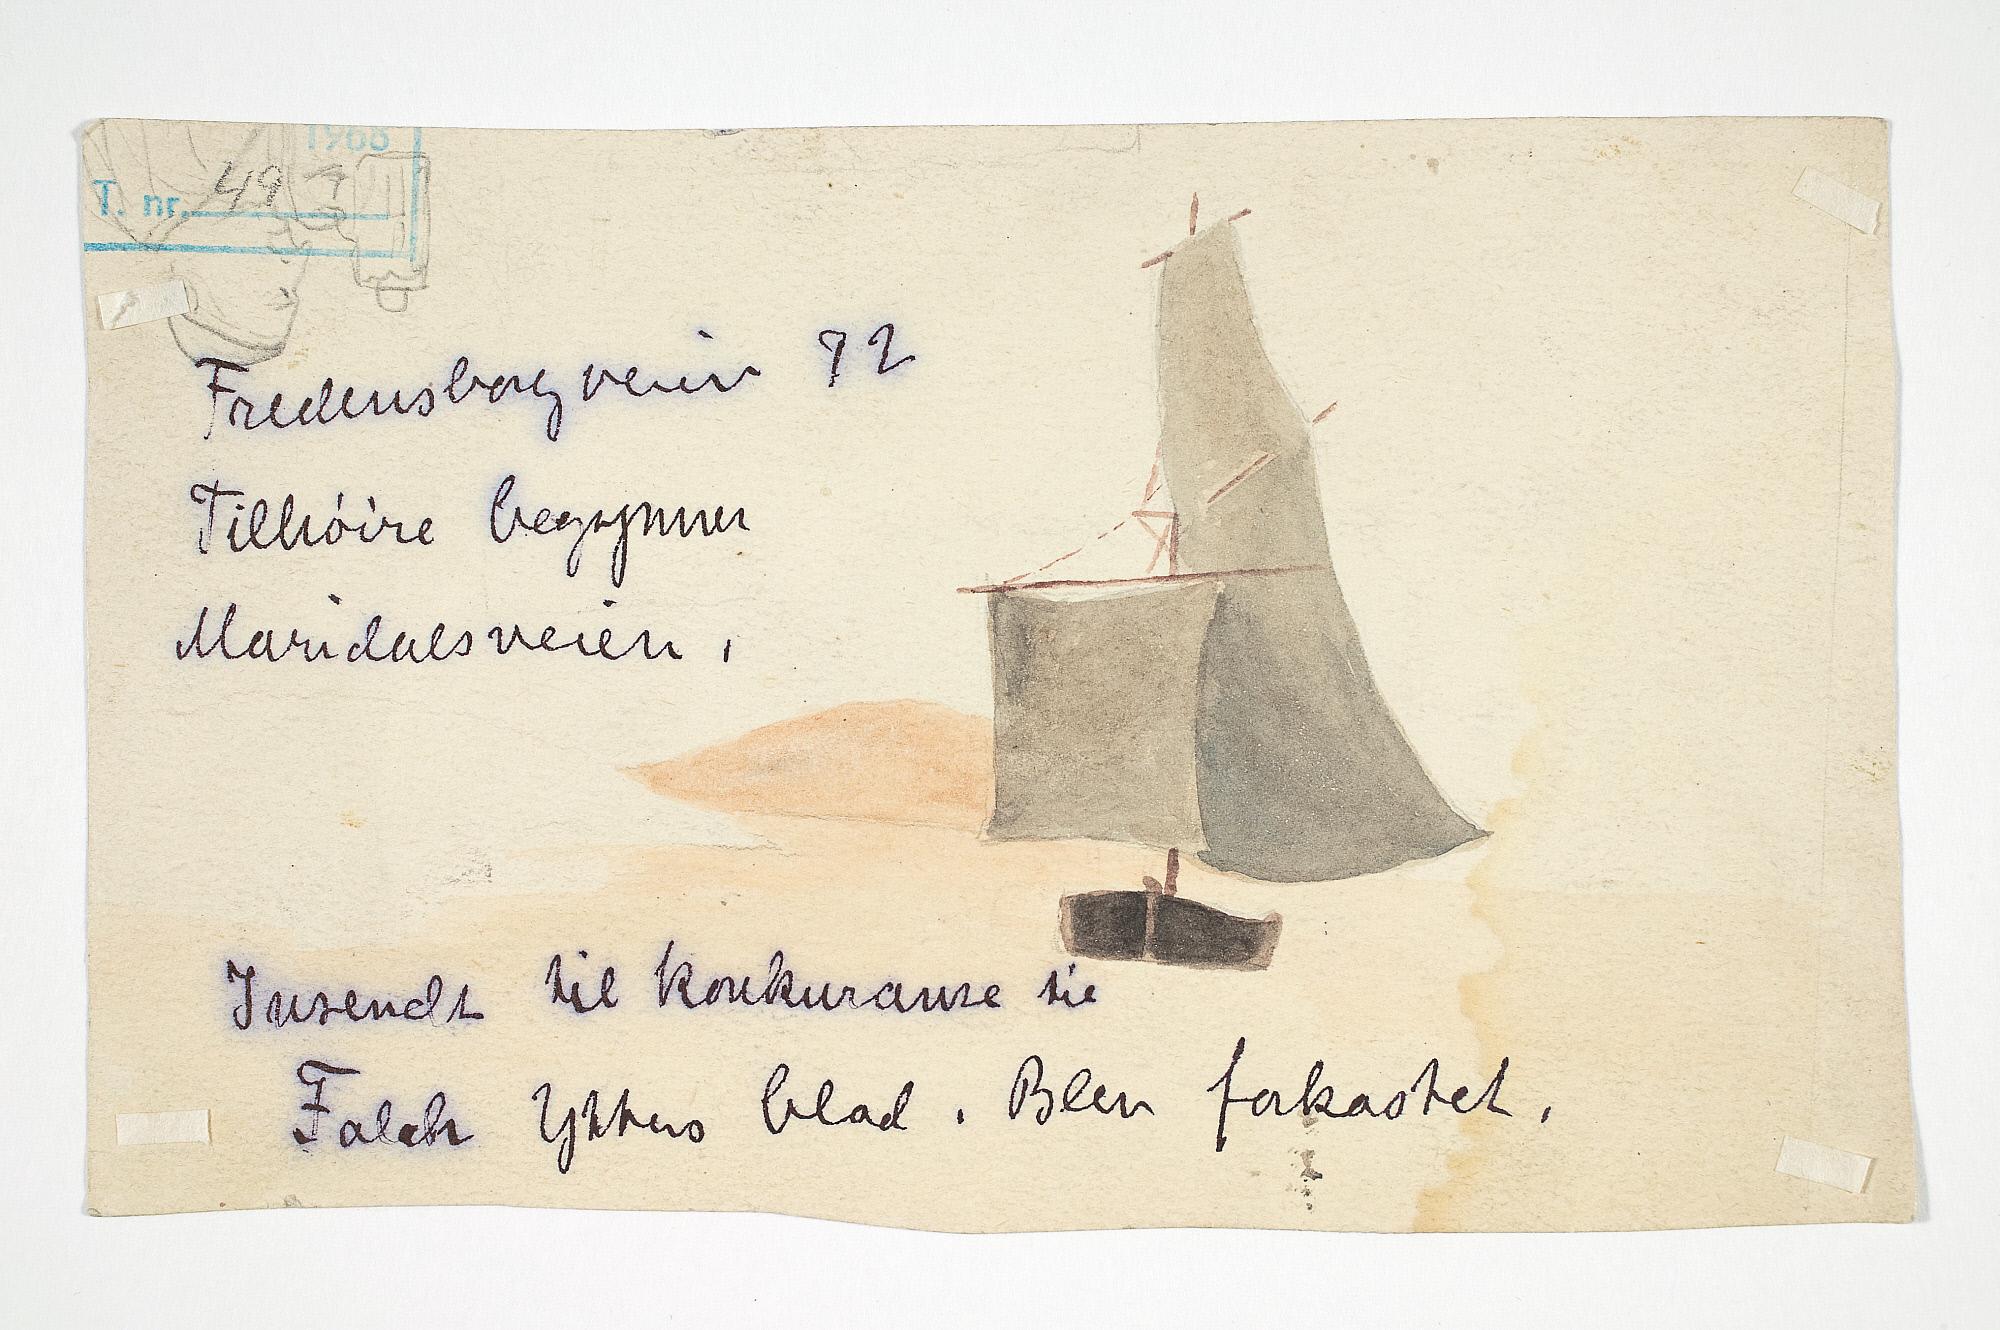 1966
T. nr. 49
Fredensborgveien 72
Tilhöire begynner
Maridalsveien.
Insendt til konkuranse til
Falck Ytters blad. Blev forkastet.